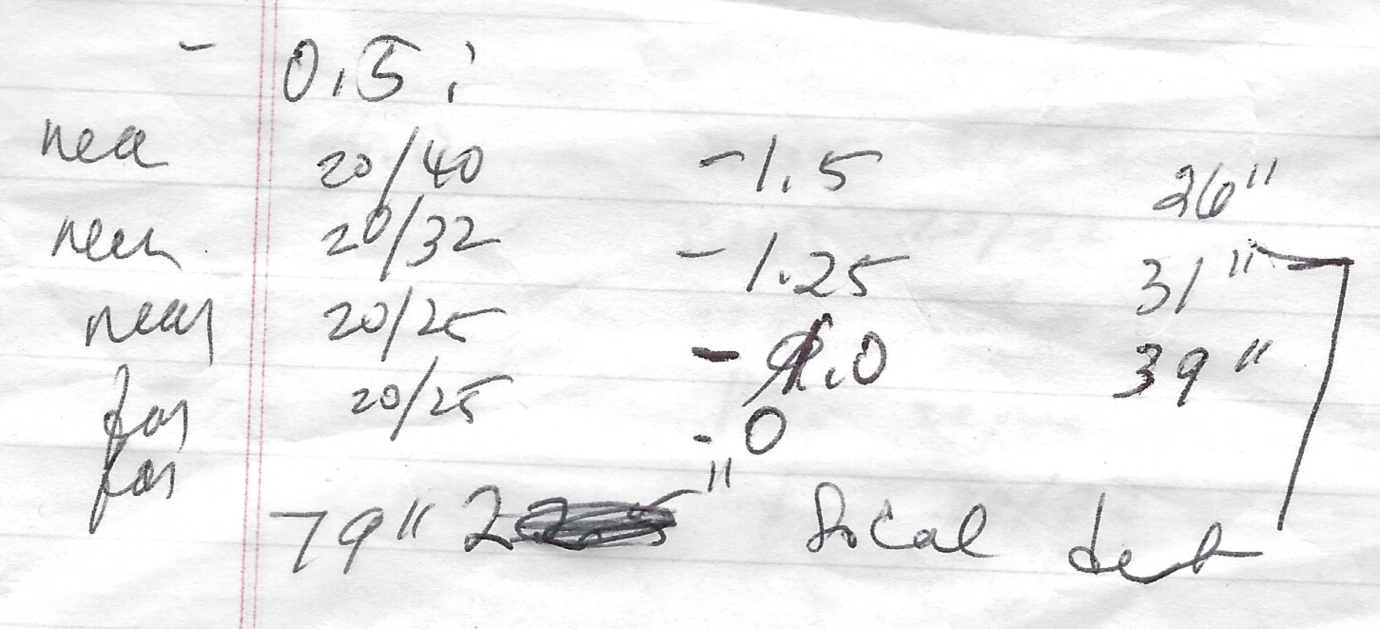 - 0.5 :
near 20/40 -1.5 26"
near 20/32 -1.25 31"
near 20/25 - 1.0 39"
far 20/25 - 0
far
79" 2 " focal